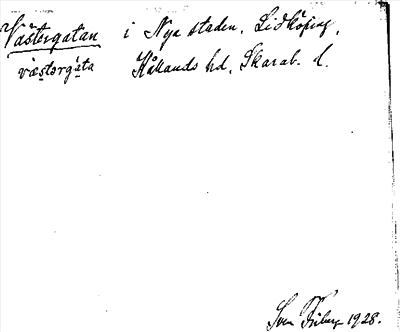 Västergatan i Nya staden, Lidköping,
västərgáta Kållands hd, Skarab. l.
Sven Friberg 1928.